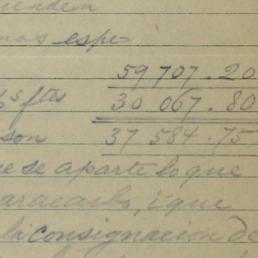 mos espe=
59 707.20
s ftes 30 067.80
son 37 584.75
se aparte lo que
aracaibo, i que
la consignacion de